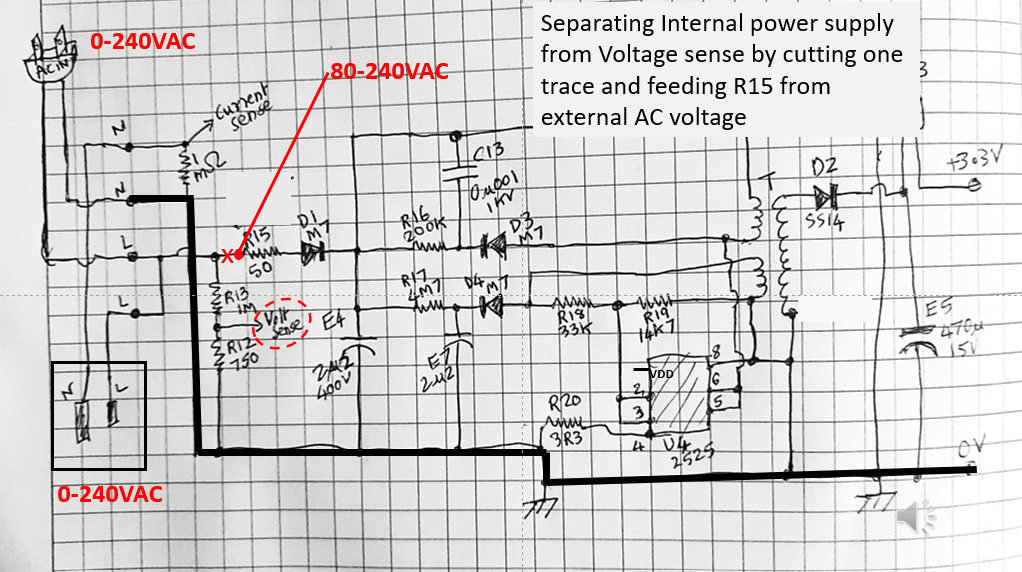 Separating Internal power supply
from Voltage sense by cutting one
trace and feeding R15 from
external AC voltage
0-240VAC
80-240VAC
3
AC IN
Current
sense
N
1
mΩ
N
L
L
C13
0.001
1KV
T
D2
SS14
+3.3V
R15
50
D1
M7
R16
200K
D3
M7
R17
4M7
D4
M7
R13
1M
Volt
sense
R12
750
E4
2µ2
400V
E7
2µ2
R18
33K
R19
14K7
E5
470µ
15V
VDD
8
6
5
2
3
4
U4
2525
R20
3R3
N
L
0-240VAC
0V